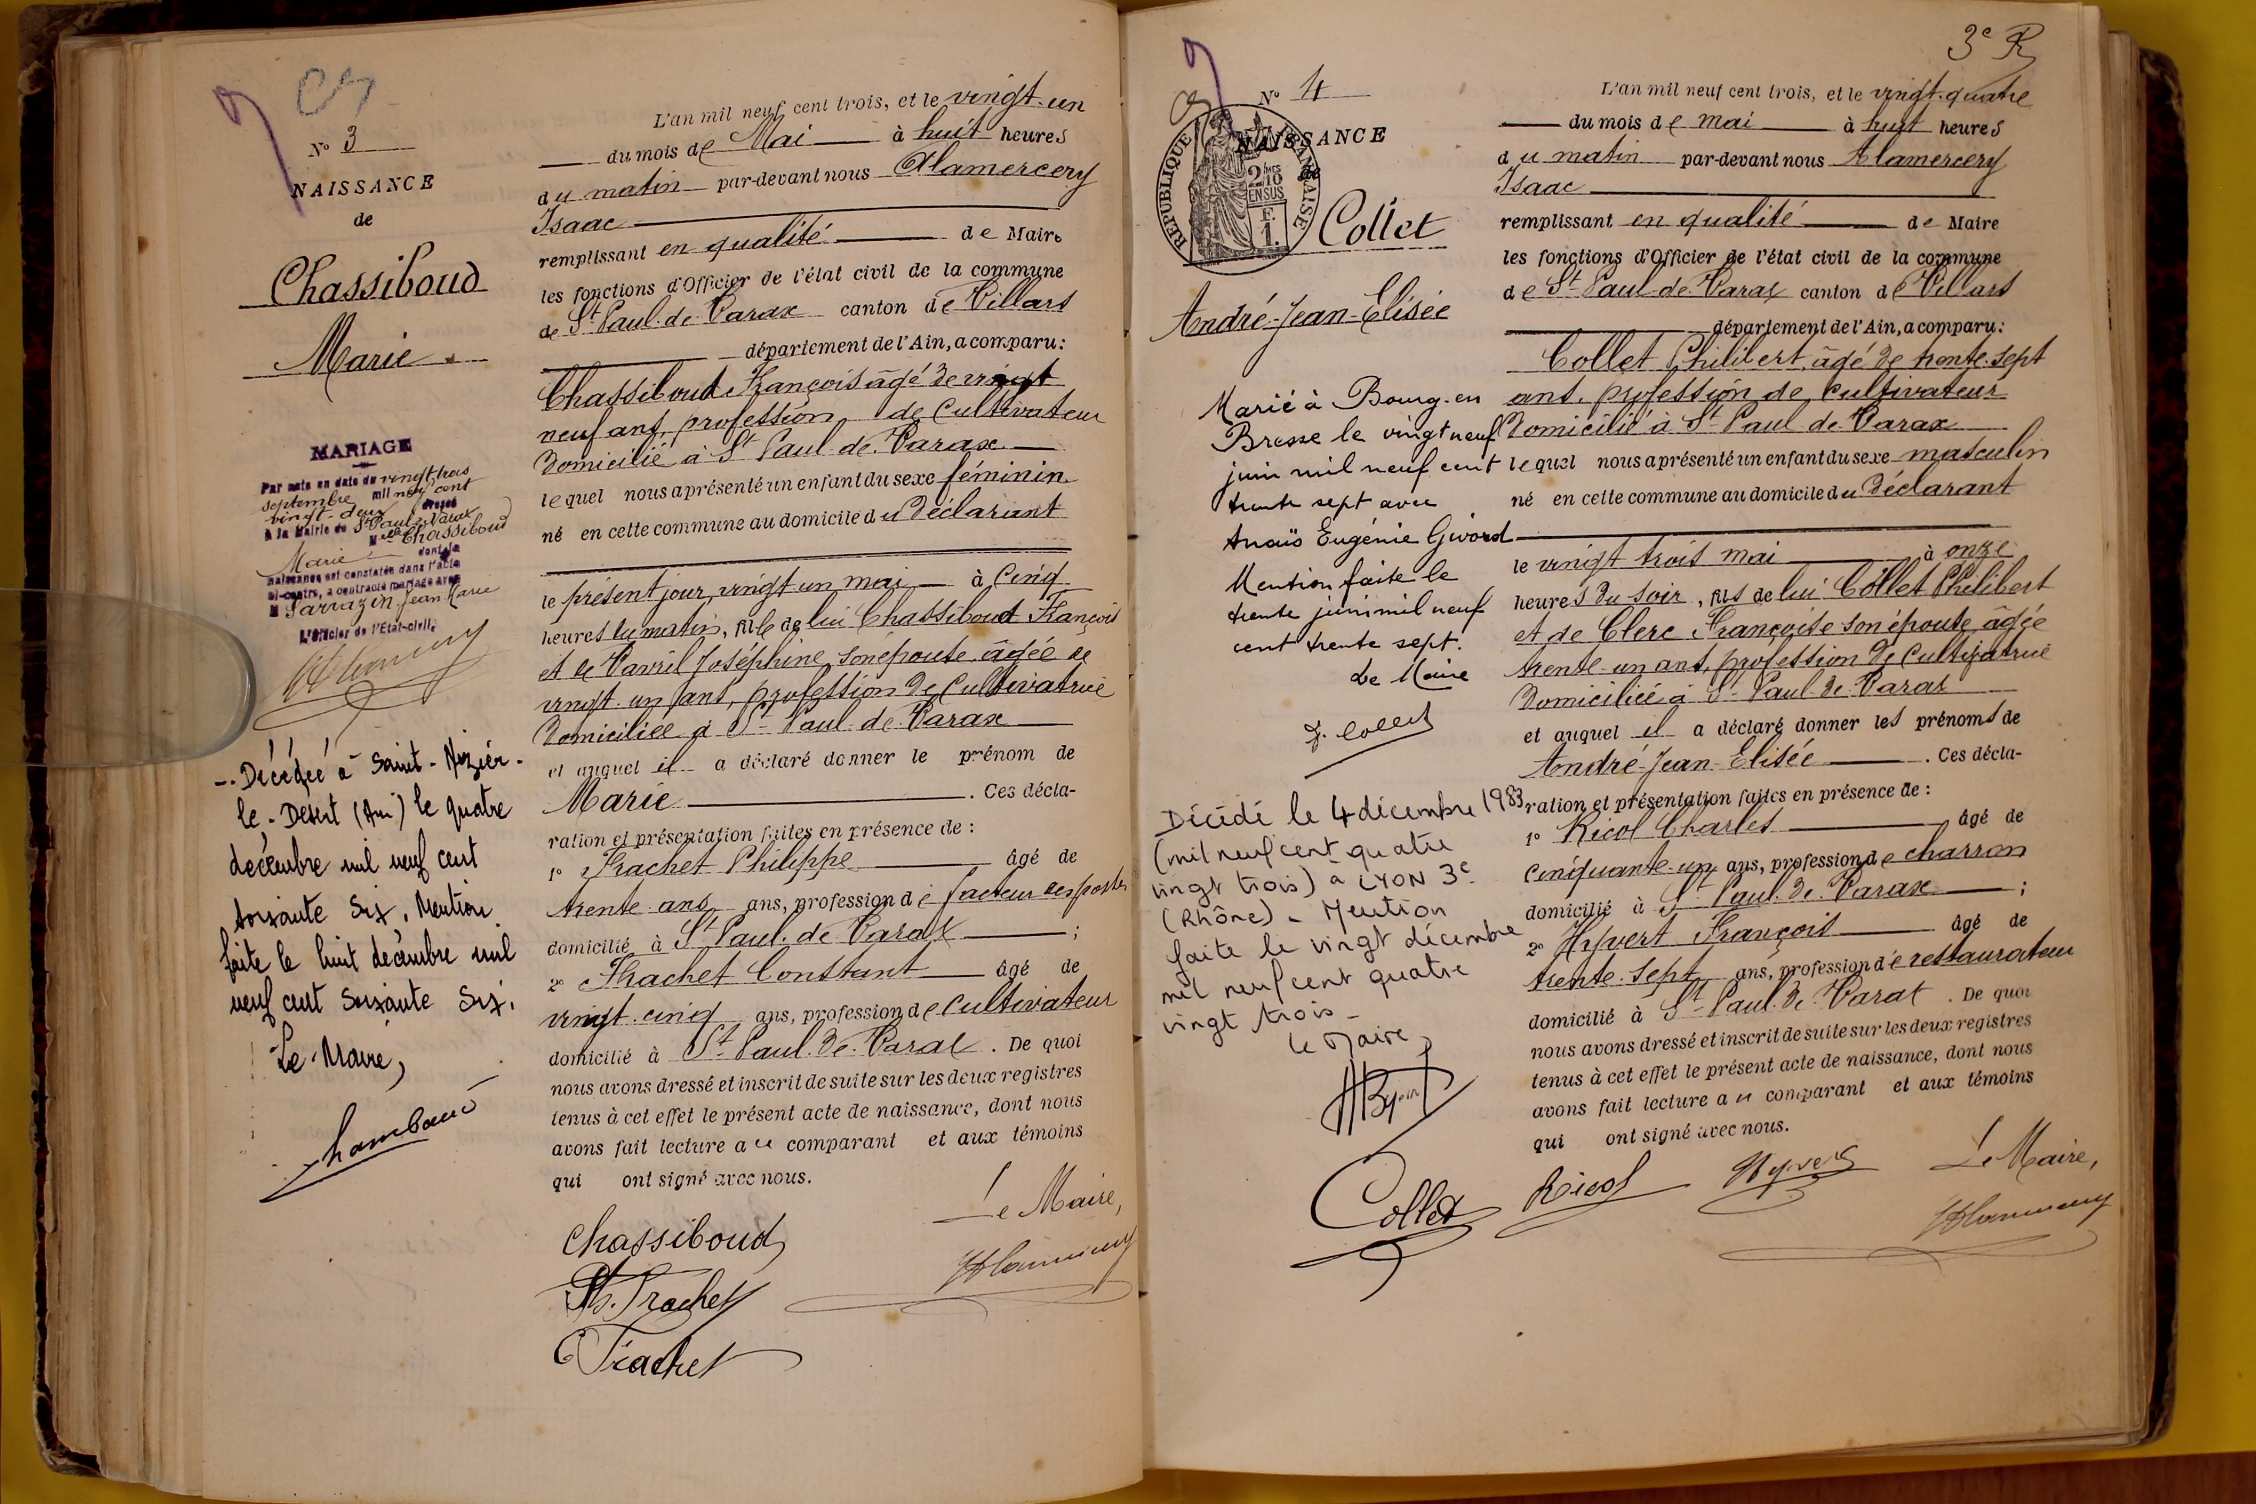 N° 3
NAISSANCE
de
Chassiboud
Marie
MARIAGE
Par acte en date du vingt trois
septembre mil neuf cent
vingt-deux dressé
à la Mairie de St Paul de Varax
Melle Chassiboud
Marie dont la
naissance est constatée dans l'acte
ci-contre, a contracté mariage avec
M Sarrazin Jean Marie
L'Officier de l'Etat-civil,
Décédée à Saint-Nizier-
le-Désert (Ain) le quatre
décembre mil neuf cent
soixante six, Mention
faite le huit décembre mil
neuf cent soixante six.
Le Maire,
L'an mil neuf cent trois, et le vingt-un
du mois de Mai à huit heures
du matin par-devant nous Flamercery
Isaac
remplissant en qualité de Maire
les fonctions d'Officier de l'état civil de la commune
de St Paul-de-Varax canton de Villars
département de l'Ain, a comparu:
Chassiboud François âgé de vingt
neuf ans, profession de Cultivateur
Domicilié à St Paul-de-Varax
lequel nous a présenté un enfant du sexe féminin
né en cette commune au domicile du Déclarant
le présent jour, vingt un mai à Cinq
heures du matin, fille de lui Chassiboud François
et de Vavril Joséphine son épouse âgée de
vingt-un ans, profession de Cultivatrice
Domiciliée à St Paul-de-Varax
et auquel il a déclaré donner le prénom de
Marie . Ces décla-
ration et présentation faites en présence de :
1° Trachet Philippe âgé de
trente ans ans, profession de facteur des postes
domicilié à St Paul-de-Varax ;
2° Trachet Constant âgé de
vingt-cinq ans, profession de Cultivateur
domicilié à St Paul-de-Varax . De quoi
nous avons dressé et inscrit de suite sur les deux registres
tenus à cet effet le présent acte de naissance, dont nous
avons fait lecture au comparant et aux témoins
qui ont signé avec nous.
Le Maire,
Chassiboud
Ph. Trachet
C Trachet
3e R
N° 4
NAISSANCE
de
REPUBLIQUE FRANÇAISE
2/10
EN SUS
F.
1.
Collet
André-Jean-Elisée
Marié à Bourg-en
Bresse le vingt neuf
juin mil neuf cent
trente sept avec
Anaïs Eugénie Givord
Mention faite le
trente juin mil neuf
cent trente sept.
Le Maire
J. Collet
Décédé le 4 décembre 1983
(mil neuf cent quatre
vingt trois) à LYON 3e
(Rhône) - Mention
faite le vingt décembre
mil neuf cent quatre
vingt trois -
Le Maire
L'an mil neuf cent trois, et le vingt-quatre
du mois de mai à huit heures
du matin par-devant nous Flamercery
Isaac
remplissant en qualité de Maire
les fonctions d'Officier de l'état civil de la commune
de St Paul-de-Varax canton de Villars
département de l'Ain, a comparu:
Collet Philibert, âgé de trente-sept
ans, profession de Cultivateur
Domicilié à St Paul-de-Varax
lequel nous a présenté un enfant du sexe masculin
né en cette commune au domicile du Déclarant
le vingt trois mai à onze
heures du soir, fils de lui Collet Philibert
et de Clerc Françoise son épouse âgée
trente-un ans, profession de Cultivatrice
Domiciliée à St Paul-de-Varax
et auquel il a déclaré donner les prénoms de
André-Jean-Elisée . Ces décla-
ration et présentation faites en présence de :
1° Ricol Charles âgé de
Cinquante-un ans, profession de charron
domicilié à St Paul-de-Varax ;
2° Hyvert François âgé de
trente-sept ans, profession de restaurateur
domicilié à St Paul-de-Varax . De quoi
nous avons dressé et inscrit de suite sur les deux registres
tenus à cet effet le présent acte de naissance, dont nous
avons fait lecture au comparant et aux témoins
qui ont signé avec nous.
Le Maire,
Collet
Ricol
Hyvert